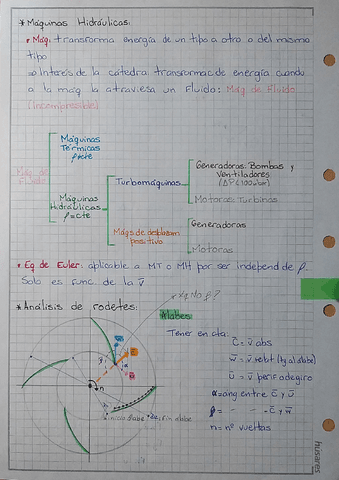 * Máquinas Hidráulicas:
• Máq: transforma energía de un tipo a otro o del mismo
tipo
⇒ Interés de la cátedra: transformac de energía cuando
a la máq la atraviesa un Fluido: Máq de Fluido
(Incompresible)
Máq de Fluido
Máquinas Térmicas ρ≠cte
Máquinas Hidráulicas ρ=cte
Turbomáquinas
Generadoras: Bombas y Ventiladores
Motoras: Turbinas
Máqs de desplazam positivo
Generadoras
Motoras
• Eq de Euler: aplicable a MT o MH por ser independ de ρ.
Solo es func. de la v̄
* Análisis de rodetes:
Álabes
Tener en cta:
C̄ = v̄ abs
w̄ = v̄ relat (tg al álabe)
ū = v̄ perif o de giro
α = ang entre c̄ y ū
n = nº vueltas
n
husares